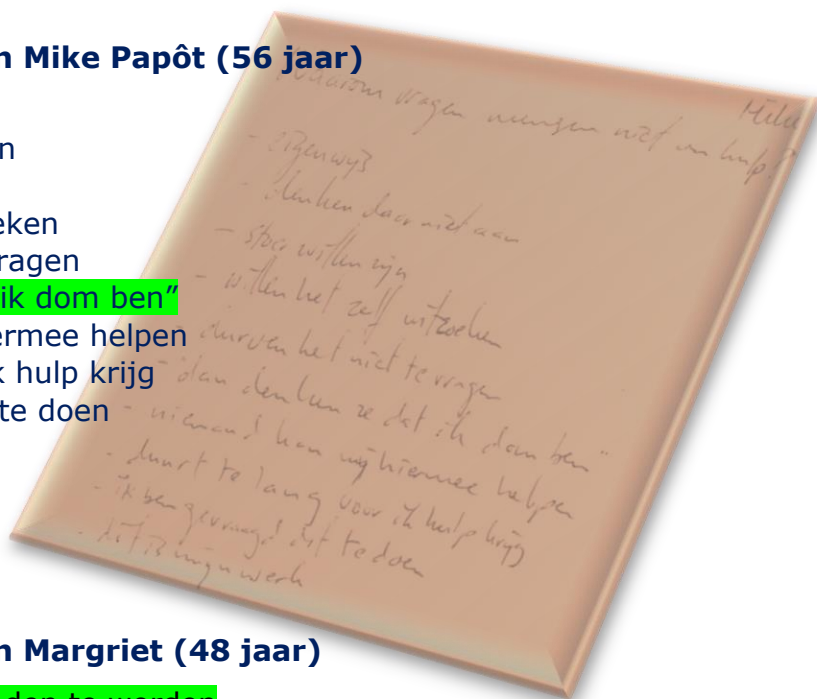 n Mike Papôt (56 jaar)
n
eken
ragen
ik dom ben"
ermee helpen
k hulp krijg
te doen
Waarom vragen mensen niet om hulp? Mike
- eigenwijs
- denken daar niet aan
- stoer willen zijn
- willen het zelf uitzoeken
- durven het niet te vragen
- "dan denken ze dat ik dom ben"
- niemand kan mij hiermee helpen
- duurt te lang voor ik hulp krijg
- ik ben gevraagd dit te doen
- dit is mijn werk
n Margriet (48 jaar)
den te worden